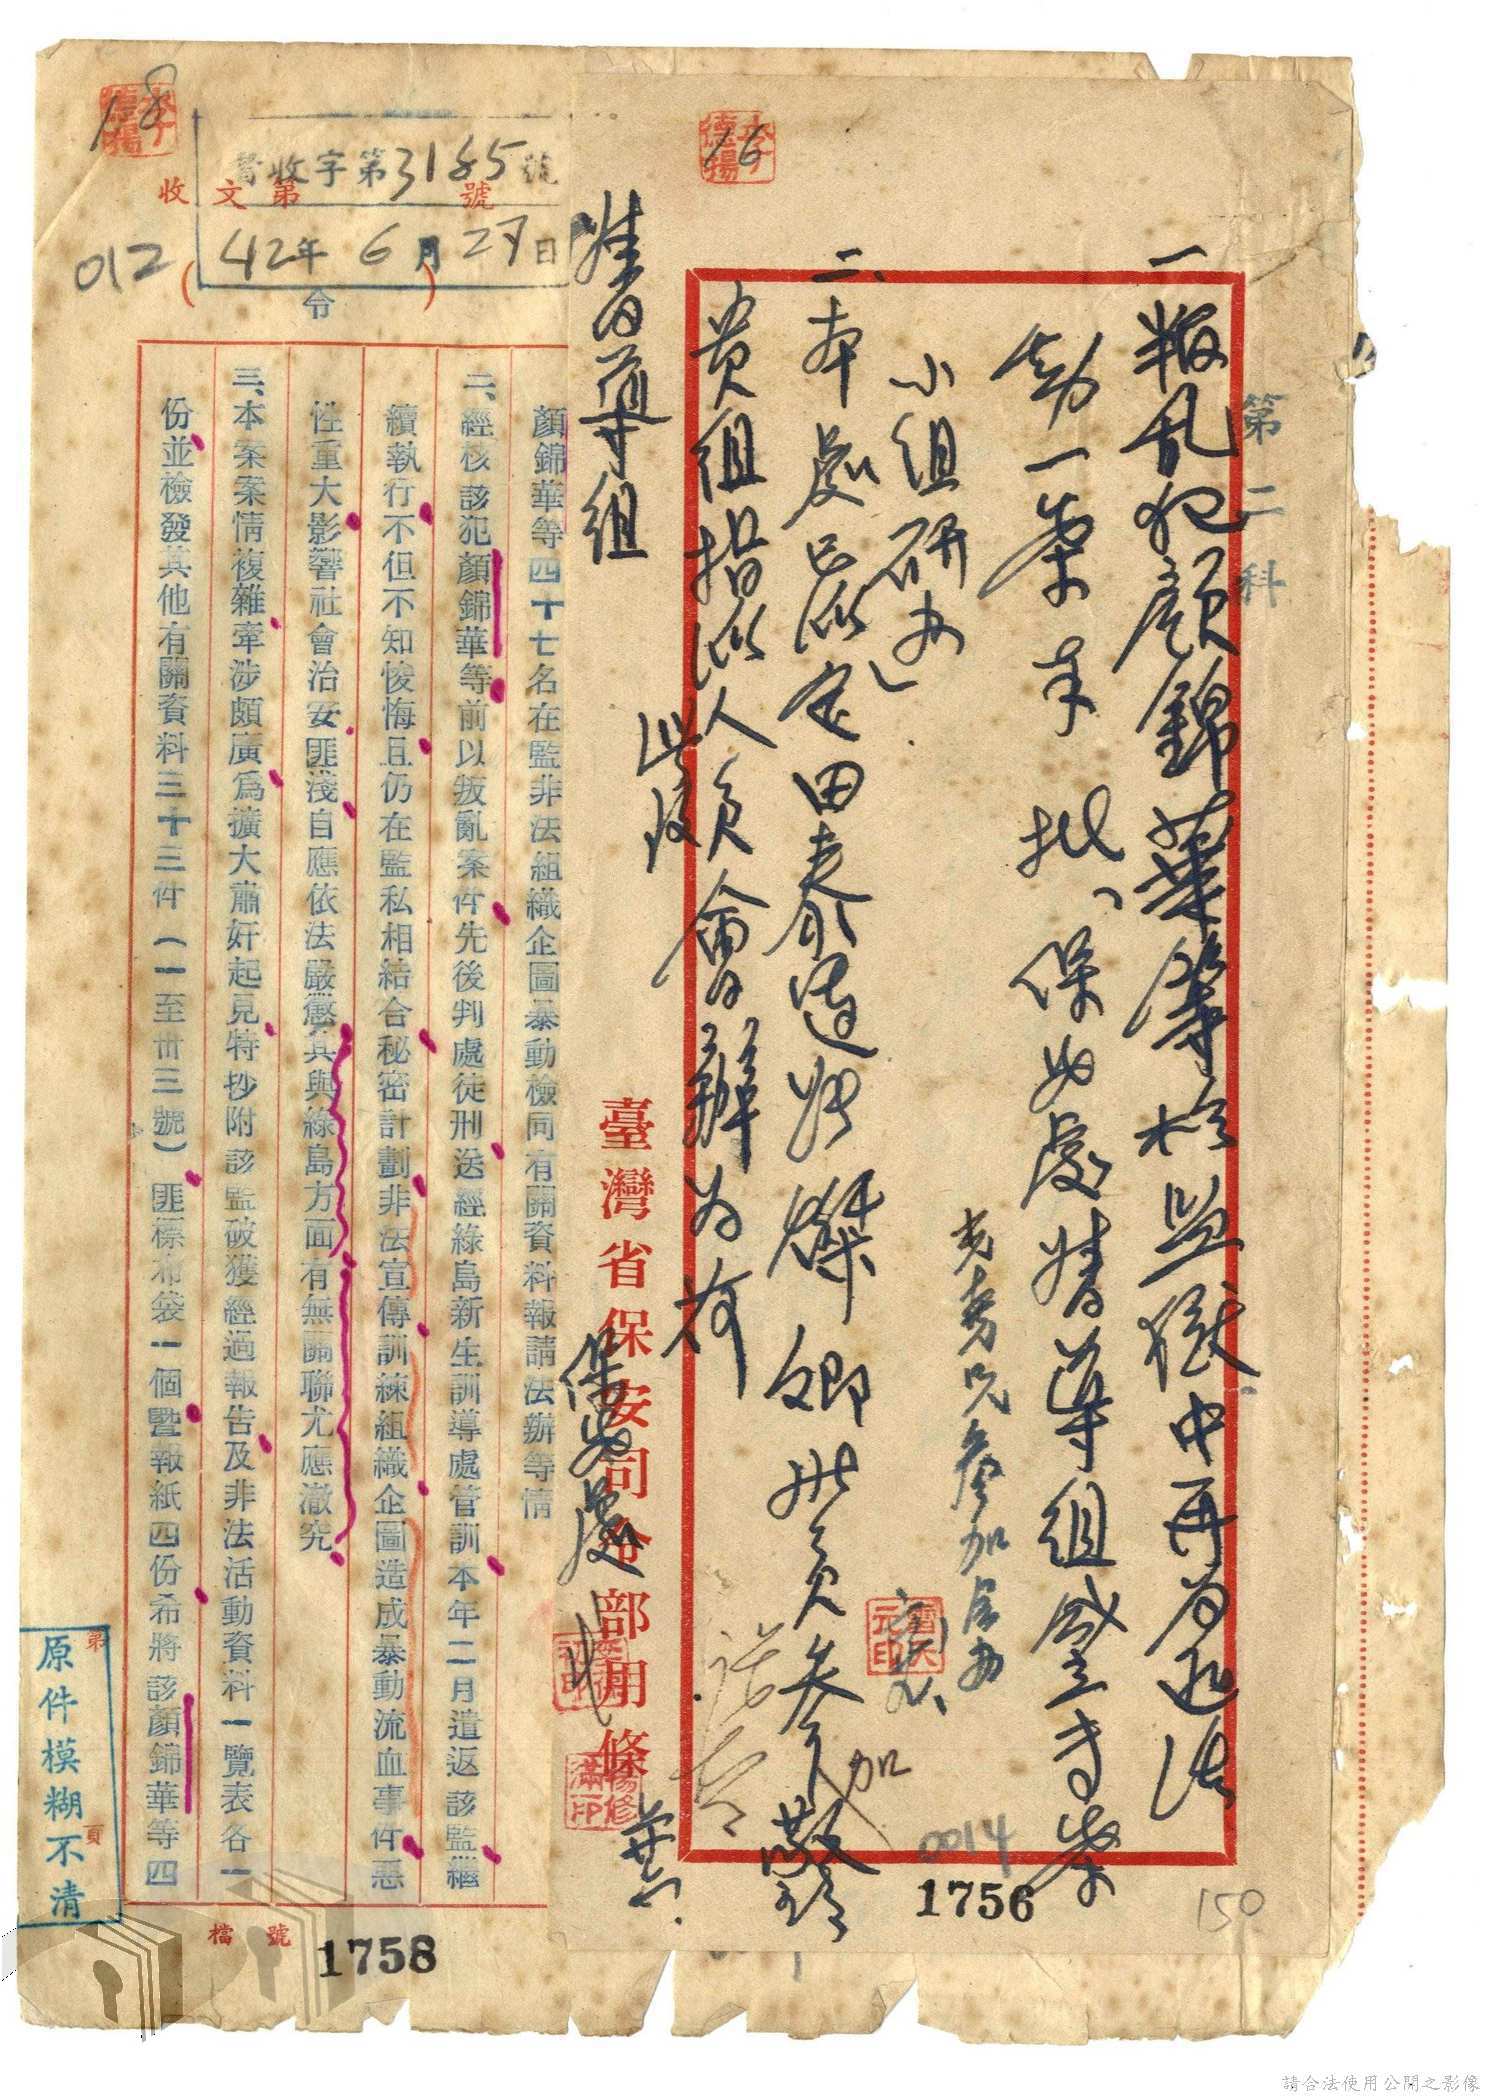 第二科
一、叛乱犯顏錦華等於監獄中再为非法
動一案奉批、保安處督導組成立專案
小組研办」
二、本處已派定田泰達張燦卿兩員參加敬請
貴組指派人員會辦为荷
此致
督導組
保安處
六、廿六、
臺灣省保安司令部用條
16
0014
1756
150
18
督收字第3185號
收文第 號
42年6月27日
012
( 令 )
顏錦華等四十七名在監非法組織企圖暴動檢同有關資料報請法辦等情
二、經核該犯顏錦華等前以叛亂案件先後判處徒刑送經綠島新生訓導處管訓本年二月遣返該監繼
續執行不但不知悛悔且仍在監私相結合秘密計劃非法宣傳訓練組織企圖造成暴動流血事件惡
性重大影響社會治安匪淺自應依法嚴懲其與綠島方面有無關聯尤應澈究
三、本案案情複雜牽涉頗廣爲擴大肅奸起見特抄附該監破獲經過報告及非法活動資料一覽表各一
份並檢發其他有關資料三十三件(一至卅三號)匪標布袋一個暨報紙四份希將該顏錦華等四
檔 號
1758
第 頁
原件模糊不清
請合法使用公開之影像